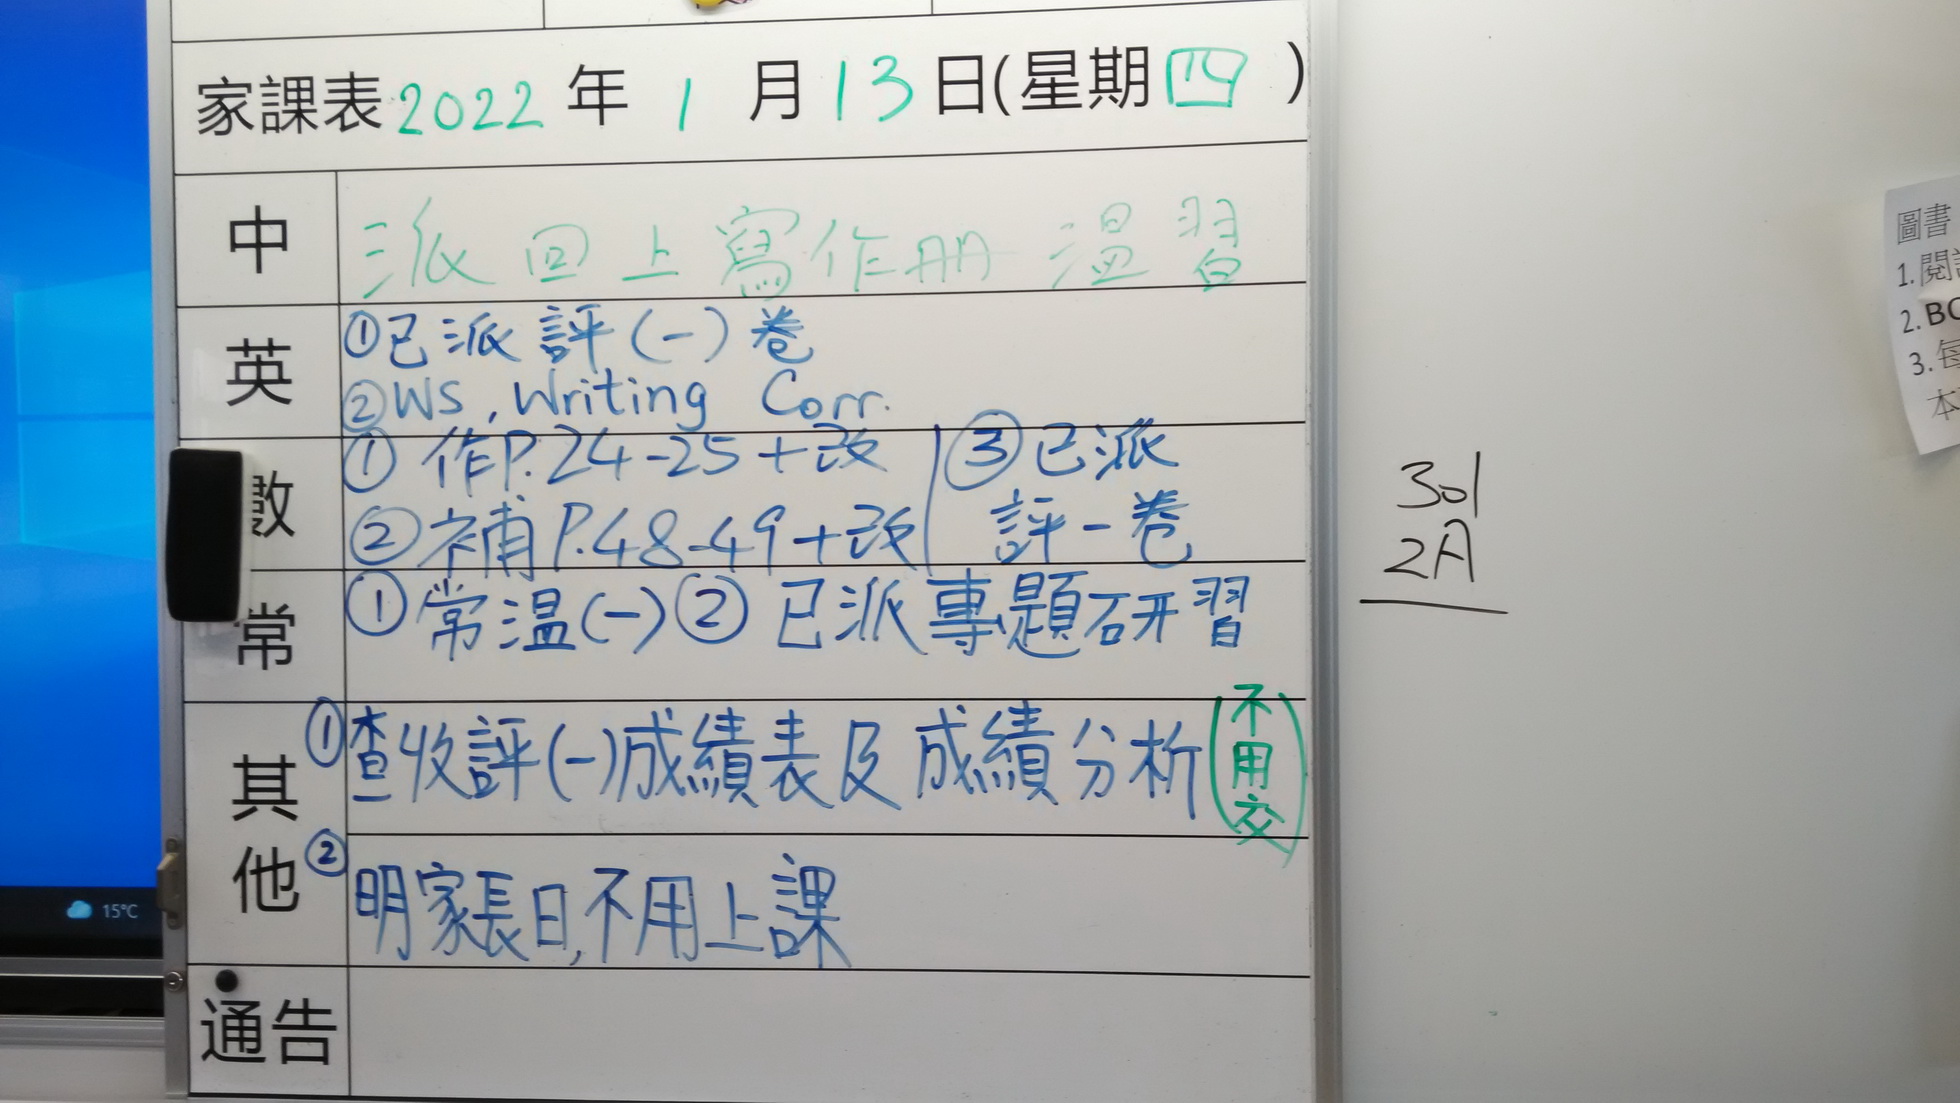 家課表 2022 年 1 月 13 日(星期四)
中
派回上寫作册 温習
英
①已派評(一)卷
②WS, Writing Corr.
數
①作P.24-25+改
②補P.48-49+改
③已派
評一卷
常
①常温(一)②已派專題研習
其他
①查收評(一)成績表及成績分析(不用交)
②明家長日,不用上課
通告
15°C
301
2A
圖書
1.閱
2.BO
3.每
本